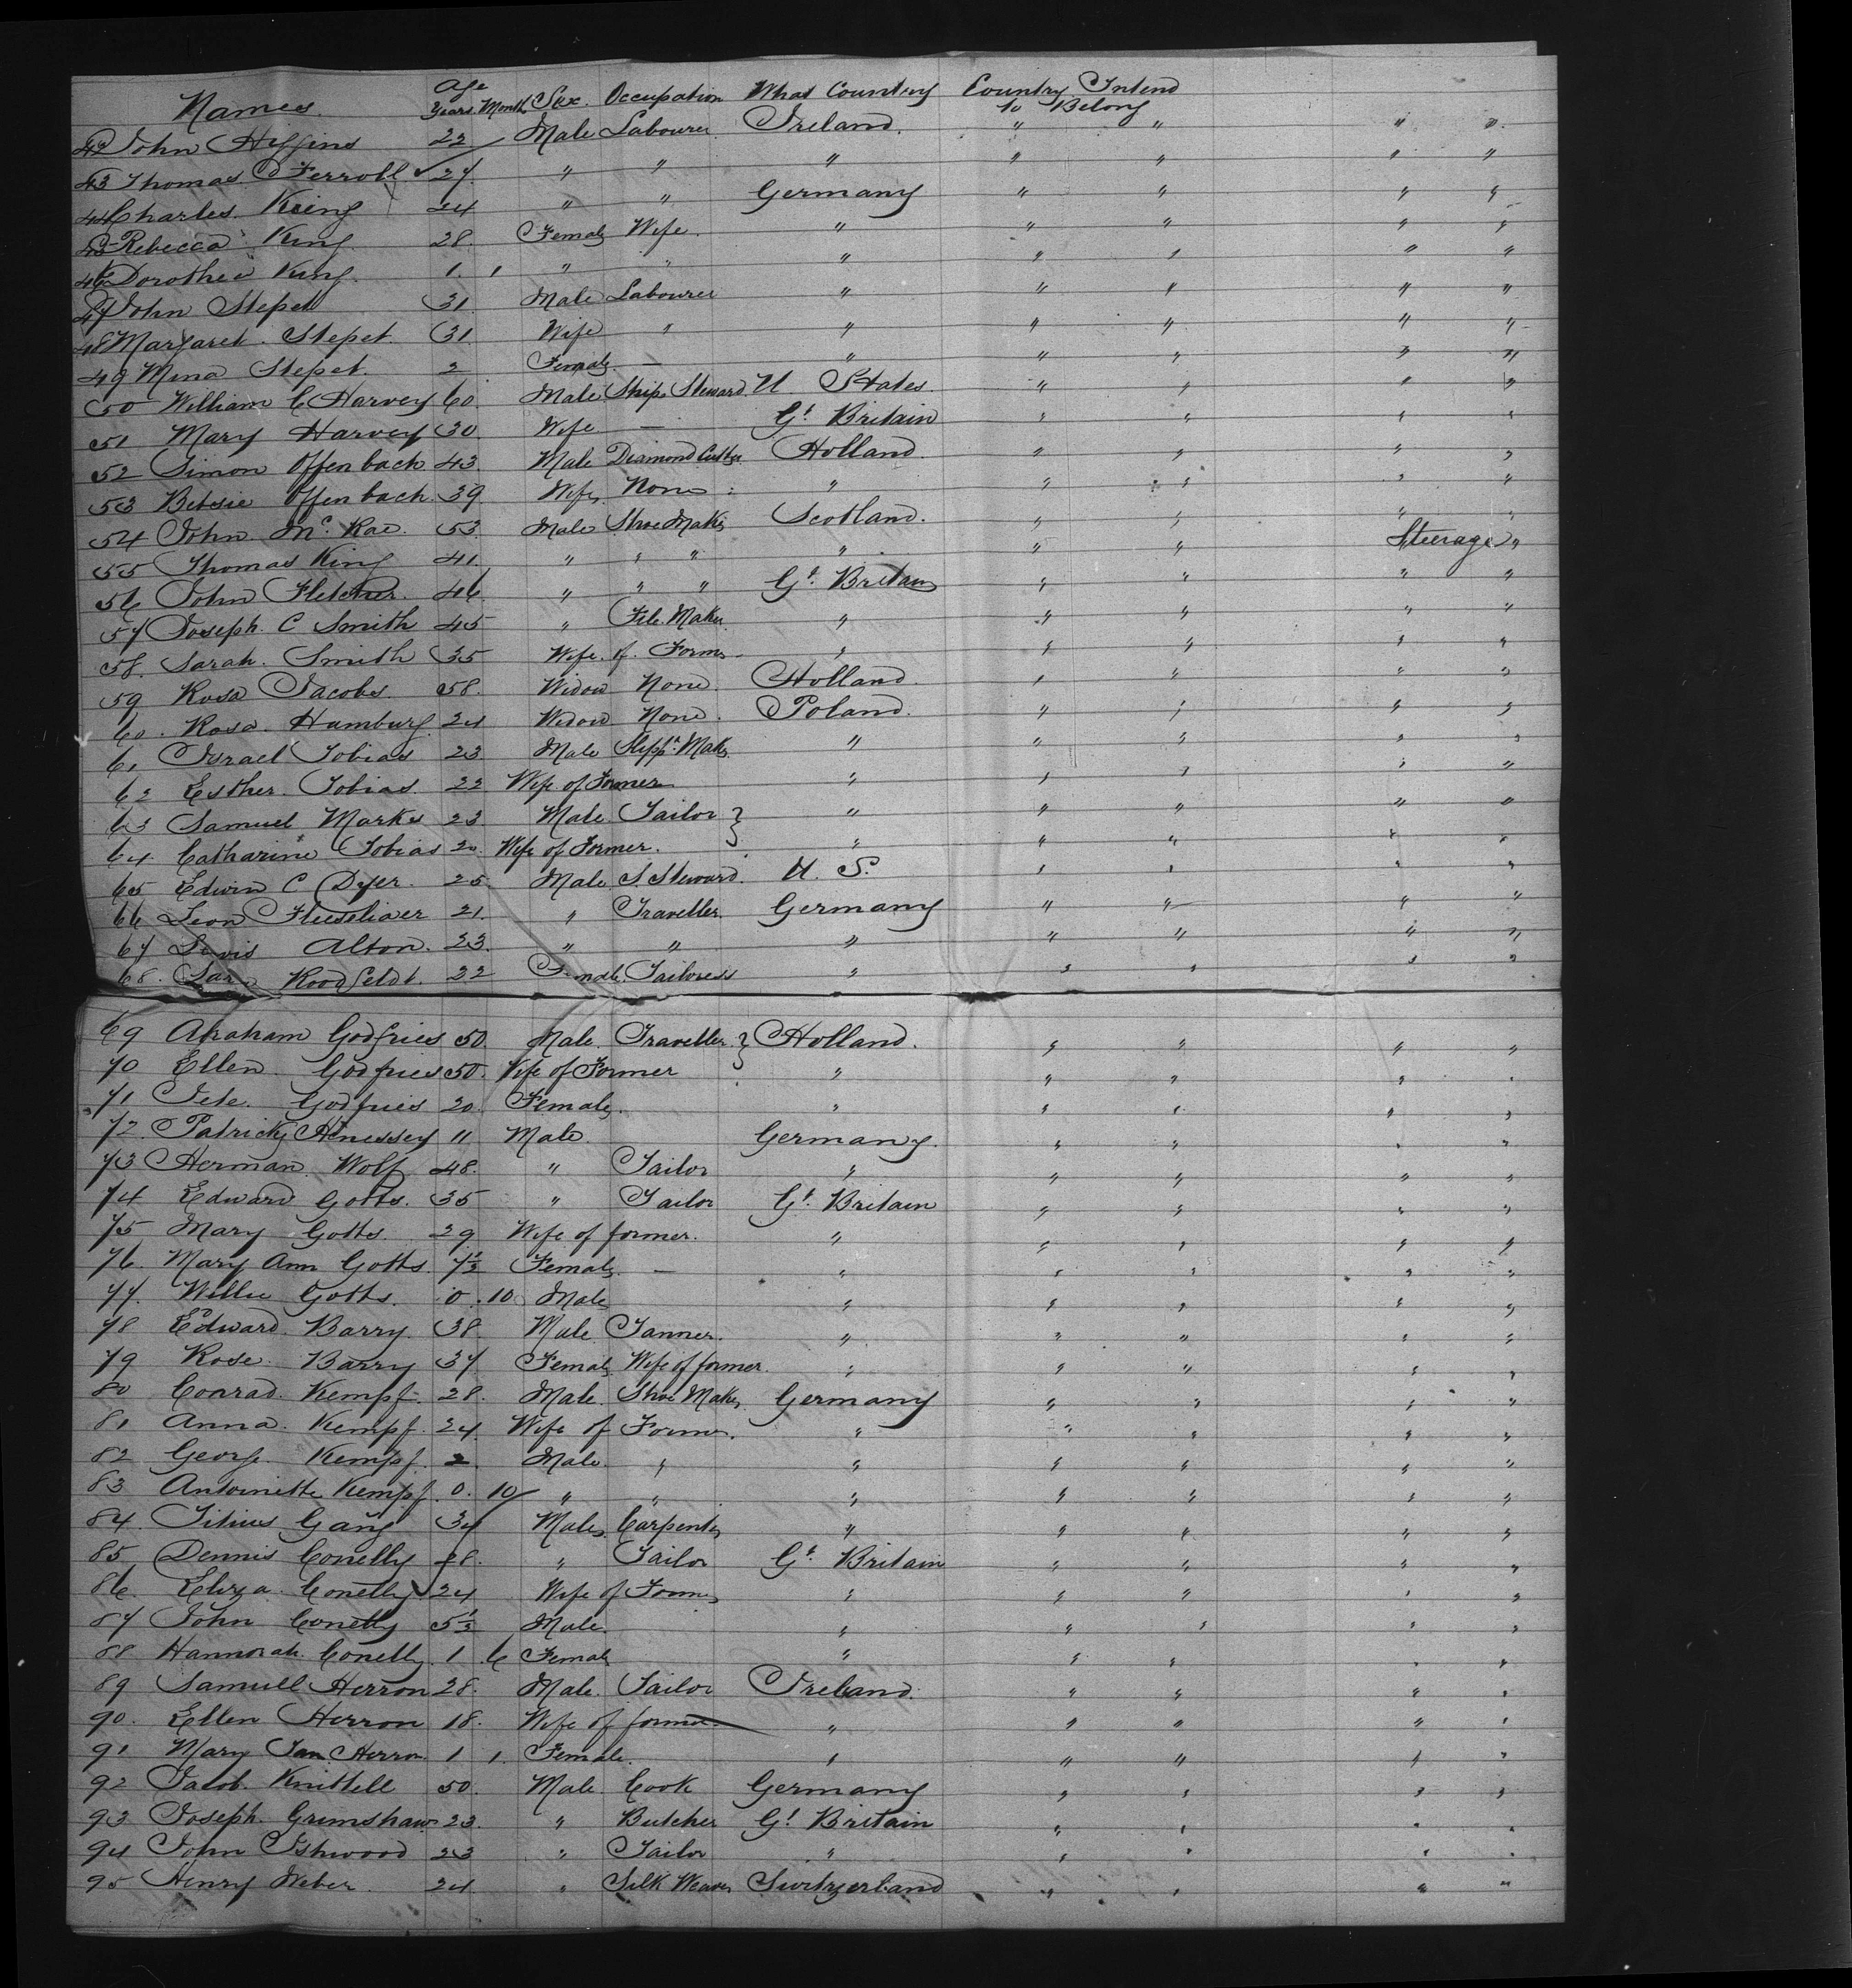 Names. Age Years Month Sex. Occupation What Country Country Intend to Belong
42 John Higgins 22 Male Labourer Ireland. " " " "
43 Thomas Ferroll 27 " " " " " " "
44 Charles King 24 " " Germany " " " "
45 Rebecca King 28. Female Wife. " " " " "
46 Dorothea King 1. 1 " " " " " " "
47 John Stepet 31 Male Labourer " " " " "
48 Margaret Stepet. 31 Wife " " " " " "
49 Mina Stepet. 2 Female — " " " " "
50 William C Harvey 60. Male Ships Steward U States. " " " "
51 Mary Harvey 30 Wife — Gt. Britain " " " "
52 Simon Offenbach 43 Male Diamond Cutter Holland " " " "
53 Betsie Offenbach 39. Wife None " " " " "
54 John Mc. Rae. 53. Male Shoe Maker Scotland. " " " "
55 Thomas King 41. " " " " " " Steerage "
56 John Fletcher. 46 " " " Gt. Britain " " " "
57 Joseph. C Smith 45 " File Maker " " " " "
58. Sarah. Smith 35 Wife. of. Former " " " " "
59 Rosa Jacobs 58. Widow None. Holland. " " " "
60. Rosa. Hamburg. 24 Widow None. Poland. " " " "
61 Israel Tobias 23. Male Slippr. Maker " " " " "
62 Esther. Tobias. 22 Wife of Former " " " " "
63 Samuel Marks 23. Male Tailor } " " " " "
64. Catharine Tobias 20. Wife of Former. " " " " "
65 Edwin C Dyer. 25. Male S. Steward. U. S. " " " "
66 Leon 21. " Traveller. Germany " " " "
67 Lewis Alton. 23. " " " " " " "
68. Sara 22 Female. Tailoress " " " " "
69 Abraham Godfries 50. Male. Traveller. } Holland. " " " "
70 Ellen Godfries 50. Wife of Former " " " " "
71 Godfries 20. Female. " " " " "
72. Patrick Henessey 11 Male Germany. " " " "
73 Herman Wolf 48. " Tailor " " " " "
74 Edward Gotts. 35 " Tailor Gt. Britain " " " "
75 Mary Gotts. 29 Wife of former. " " " " "
76. Mary Ann Gotts. 7½ Female — " " " " "
77. Willie Gotts. 0. 10 Male " " " " "
78 Edward. Barry. 38. Male Tanner. " " " " "
79 Rose. Barry 37 Female Wife of former. " " " " "
80 Conrad. Kempf. 28. Male. Shoe Maker Germany " " " "
81 Anna. Kempf. 24. Wife of Former. " " " " "
82 George Kempf. 2 Male. " " " " " "
83 Antoinette Kempf. 0. 10 " " " " " " "
84. Titius Gang 34 Male. Carpenter " " " " "
85, Dennis Conelly 28. " Tailor Gt. Britain " " " "
86. Eliza. Conelly 24 Wife of Former " " " " "
87 John Conelly 5½ Male. " " " " "
88 Hannorah. Conelly. 1 6 Female " " " " "
89 Samuell Herron 28. Male. Tailor Ireland. " " " "
90. Ellen Herron 18. Wife of former " " " " "
91 Mary Jan Herron 1 1. Female. " " " " "
92 Jacob. Knittell 50. Male. Cook Germany " " " "
93 Joseph. Grimshaw 23. " Butcher Gt. Britain " " " "
94 John Ishwood 23 " Tailor " " " " "
95 Henry Weber. 24 " Silk Weaver Switzerland " " " "